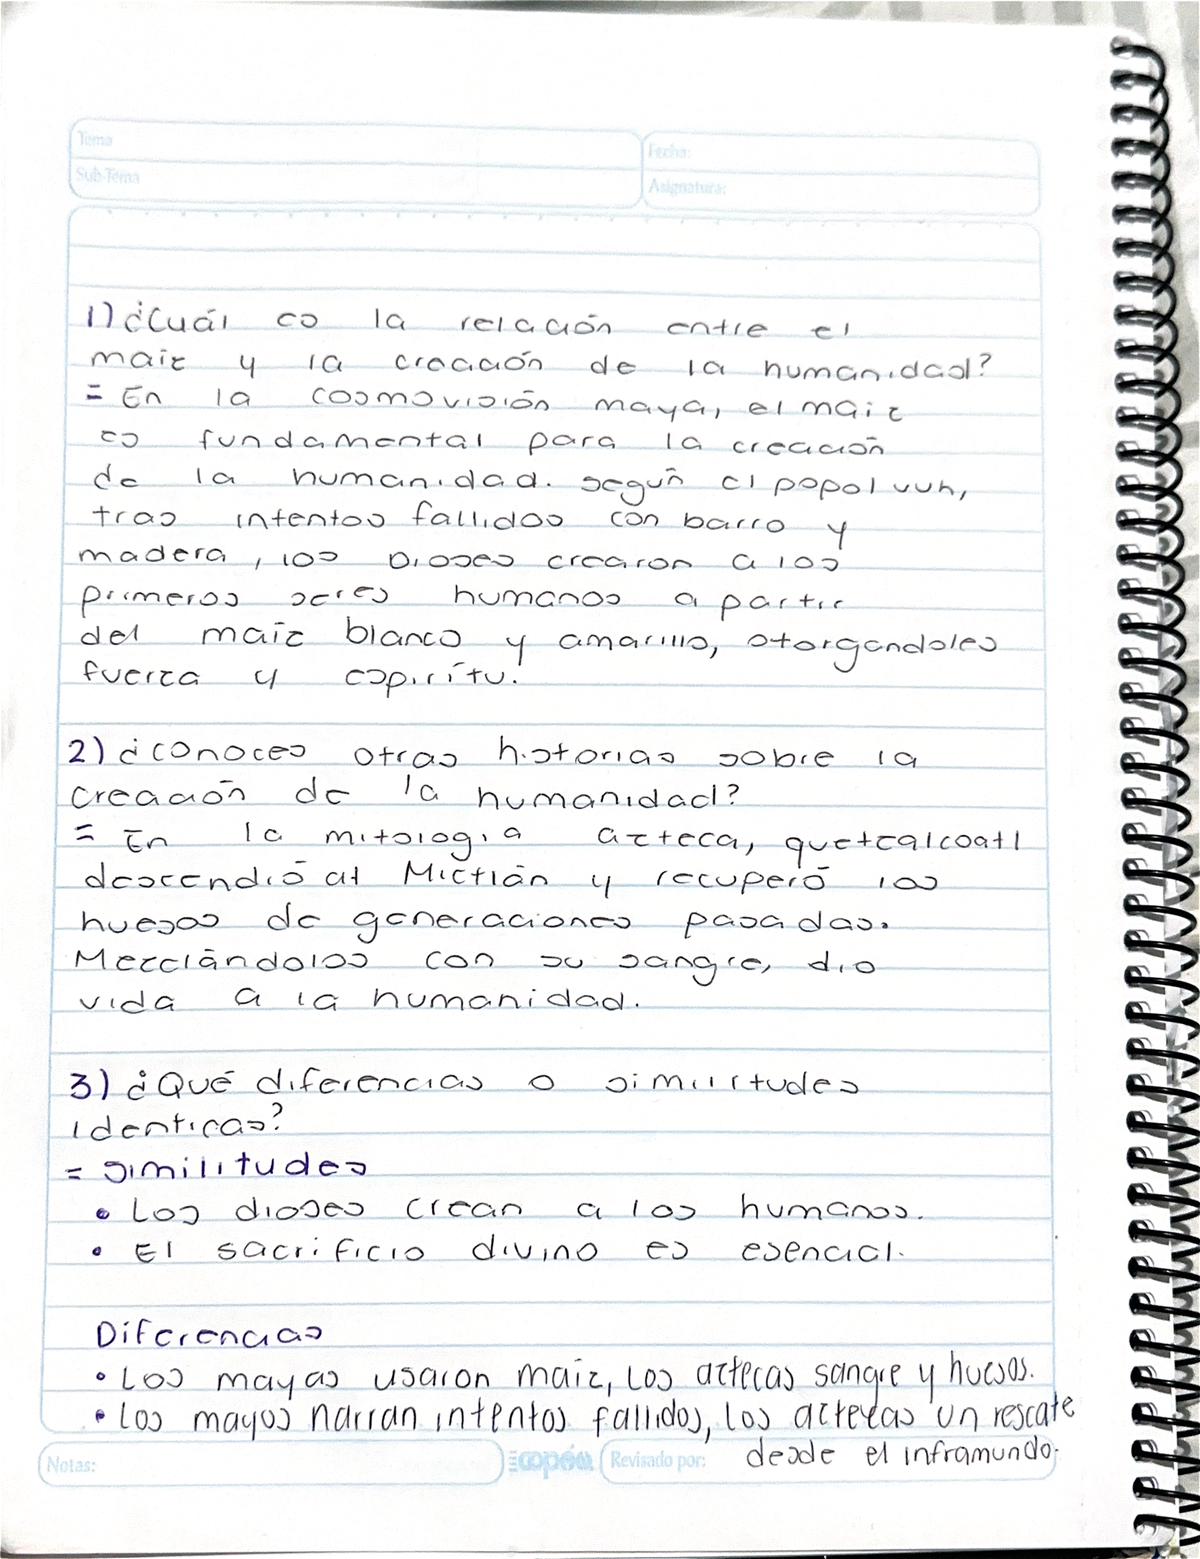 Tema
Fecha:
Sub-Tema
Asignatura:
1) ¿Cuál es la relación entre el
maiz y la creación de la humanidad?
= En la cosmovisión maya, el maiz
es fundamental para la creación
de la humanidad. según el popol vuh,
tras intentos fallidos con barro y
madera, los Dioses crearon a los
primeros seres humanos a partir
del maiz blanco y amarillo, otorgandoles
fuerza y espíritu.
2) ¿conoces otras historias sobre la
creación de la humanidad?
= En la mitologia azteca, quetzalcoatl
descendió al Mictlán y recuperó los
huesos de generaciones pasadas.
Mezclándolos con su sangre, dio
vida a la humanidad.
3) ¿Qué diferencias o similitudes
identicas?
= similitudes
• Los dioses crean a los humanos.
• El sacrificio divino es esencial.
Diferencias
• Los mayas usaron maiz, Los aztecas sangre y huesos.
• Los mayas narran intentos fallidos, Los aztecas un rescate
desde el inframundo.
Notas:
copán
Revisado por: